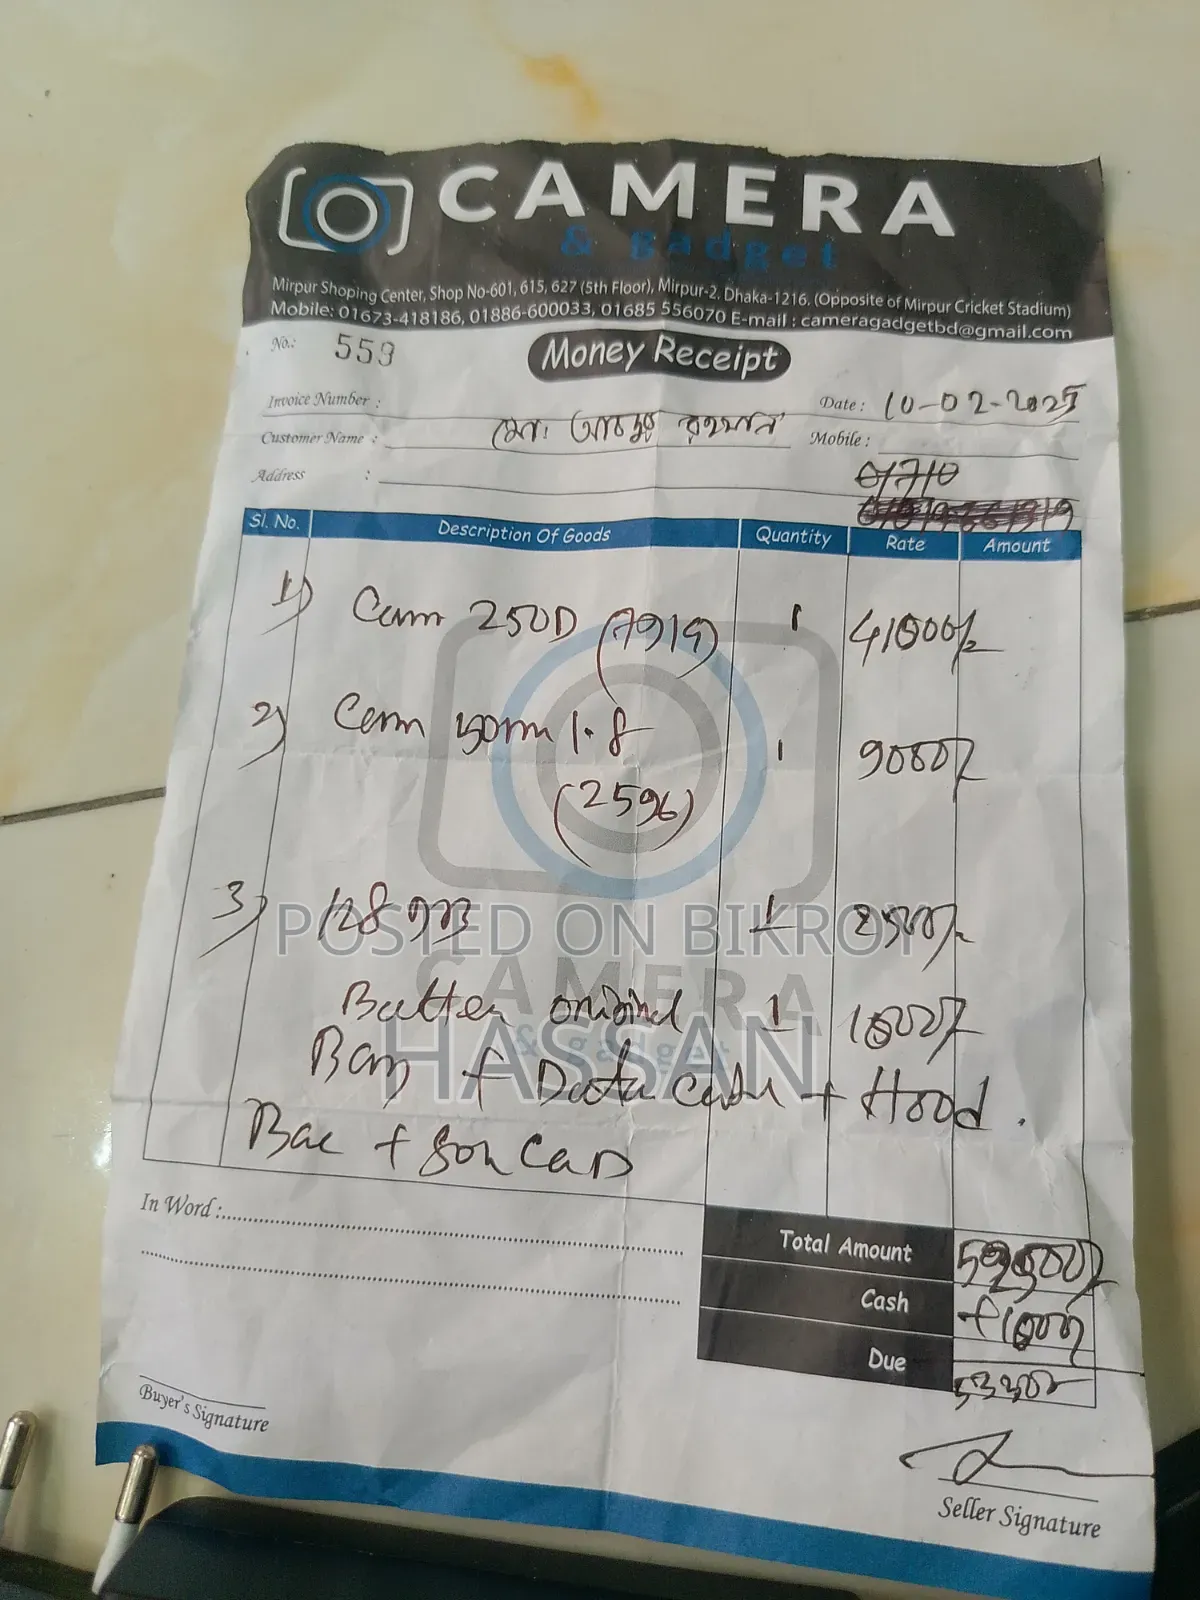 CAMERA
& gadget
Mirpur Shoping Center, Shop No-601, 615, 627 (5th Floor), Mirpur-2, Dhaka-1216. (Opposite of Mirpur Cricket Stadium)
Mobile: 01673-418186, 01886-600033, 01685 556070 E-mail : cameragadgetbd@gmail.com
No.: 559 Money Receipt
Invoice Number : Date : 10-02-2025
Customer Name : মোঃ আবদুর রহমান Mobile :
Address :
01710
Sl. No. Description Of Goods Quantity Rate Amount
1) 250D (7919) 1 41000/-
2) 50mm 1.8 1 9000/-
(2596)
3) 128 GB 1 2500/-
original 1 1000/-
Bag + Data + Hood.
+
POSTED ON BIKROY
CAMERA
HASSAN
& gadget
In Word :
Total Amount
Cash
Due
Buyer's Signature
Seller Signature